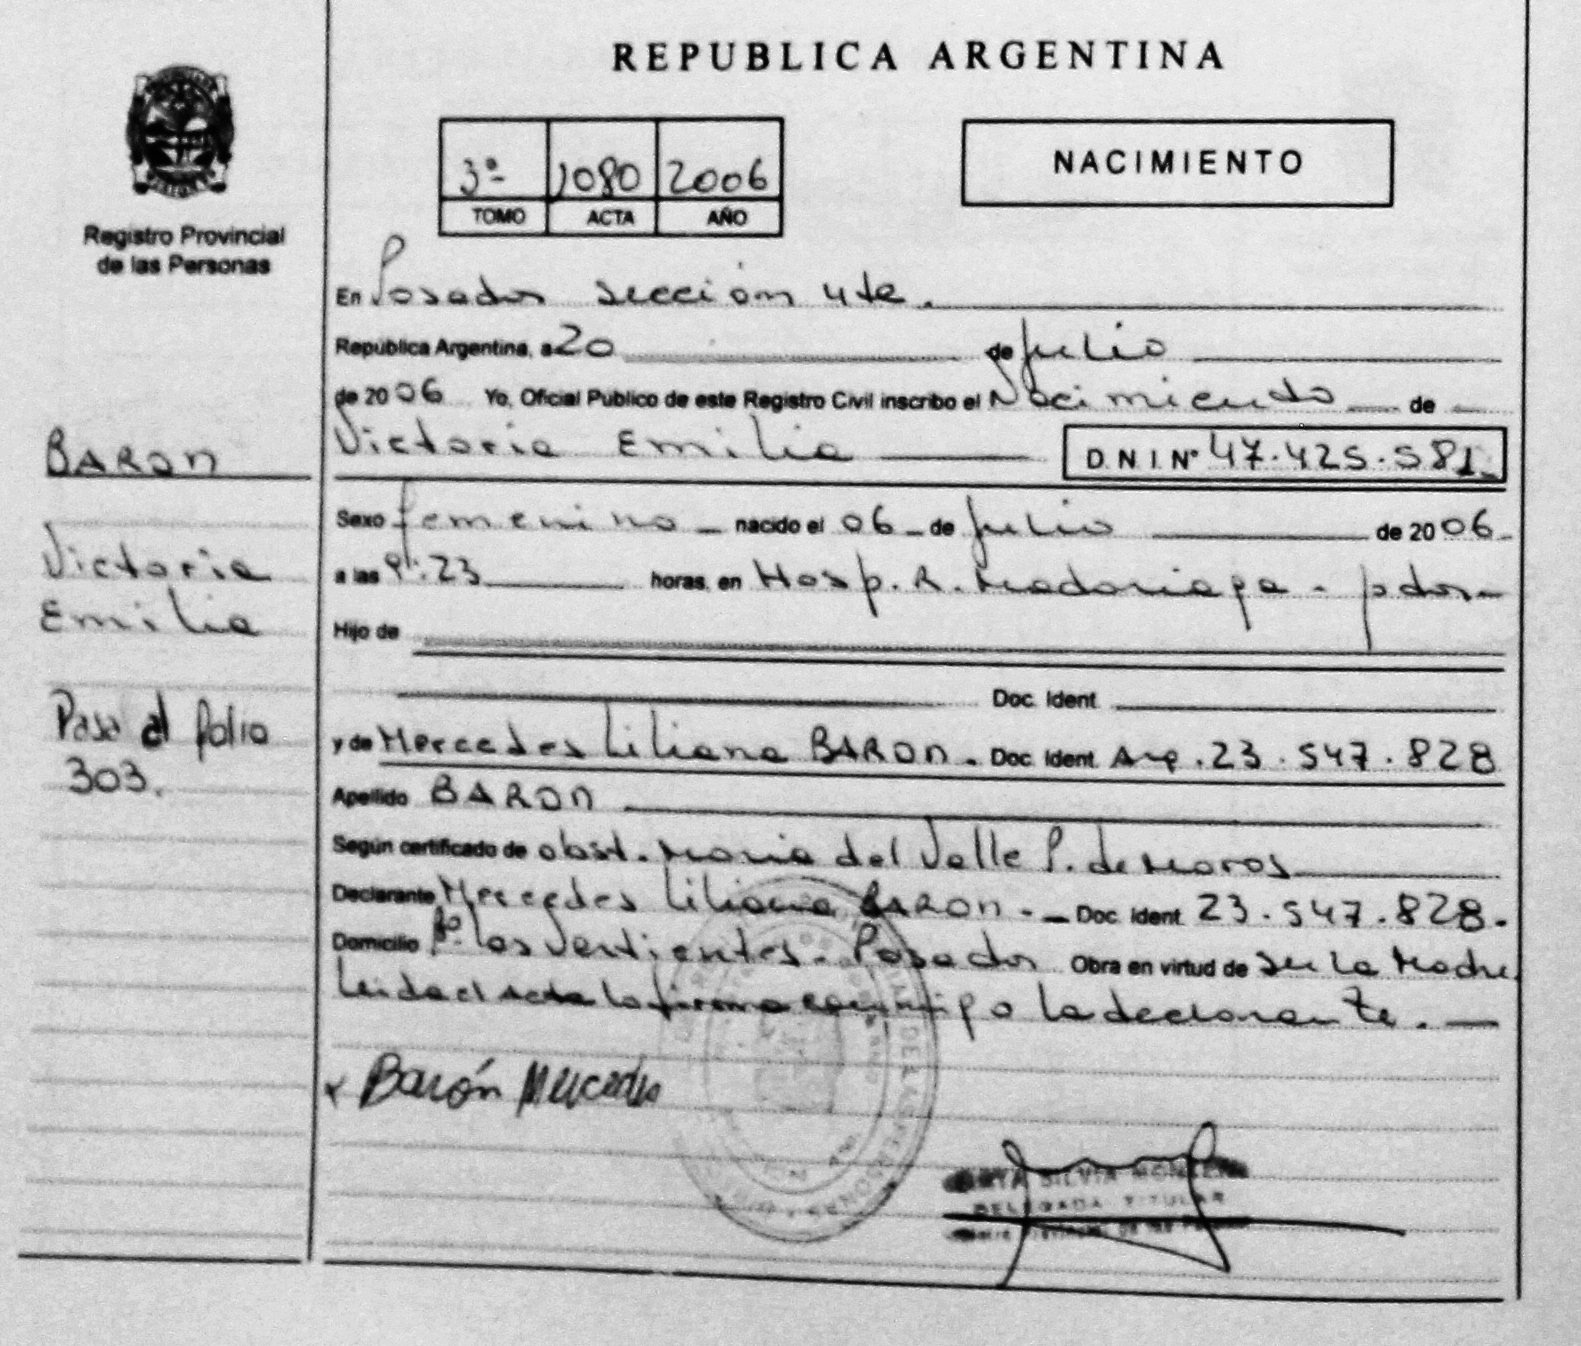 REPUBLICA ARGENTINA
Registro Provincial
de las Personas
3ª 1080 2006
TOMO ACTA AÑO
NACIMIENTO
En Posadas sección 4ta.
República Argentina, a 20 de Julio
de 2006 Yo, Oficial Público de este Registro Civil inscribo el Nacimiento de
Victoria Emilia D.N.I.Nº 47.425.581
Sexo femenino nacido el 06 de Julio de 2006
a las 9:23 horas, en Hosp. R. Madariaga - pdas
Hijo de
Doc. Ident.
y de Mercedes Liliana BARON. Doc. Ident. Arg. 23.547.828
Apellido BARON
Según certificado de obst. Maria del Valle P. de Moros
Declarante Mercedes Liliana BARON. Doc. Ident. 23.547.828.
Domicilio Bº las Vertientes - Posadas Obra en virtud de ser la Madre
Leida el Acta la firma conmigo la declarante.
Barón Mercedes
SILVIA
DELEGADA TITULAR
BARON
Victoria
Emilia
Pasa al folio
303.